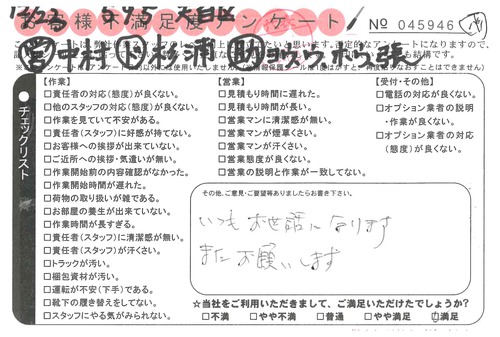 12/23 5495 天白区
お客様不満足度アンケート
No 045946
チェックリスト
【作業】
□責任者の対応(態度)が良くない。
□他のスタッフの対応(態度)が良くない。
□作業を見ていて不安がある。
□責任者(スタッフ)に好感が持てない。
□お客様への挨拶が出来ていない。
□ご近所への挨拶・気遣いが無い。
□作業開始前の内容確認がなかった。
□作業開始時間が遅れた。
□荷物の取り扱いが雑である。
□お部屋の養生が出来ていない。
□作業時間が長すぎる。
□責任者(スタッフ)に清潔感が無い。
□責任者(スタッフ)が汗くさい。
□トラックが汚い。
□梱包資材が汚い。
□運転が不安(下手)である。
□靴下の履き替えをしてない。
□スタッフにやる気がみられない。
【営業】
□見積もりに遅れた。
□見積もり時間が長い。
□営業マンに清潔感が無い。
□営業マンが煙草くさい。
□営業マンが汗くさい。
□営業態度が良くない。
□営業の説明と作業が一致してない。
【受付・その他】
□電話の対応が良くない。
□オプション業者の説明
・作業が良くない。
□オプション業者の対応
(態度)が良くない。
その他、ご意見・ご要望等ありましたらお書き下さい。
いつもお世話になります
またお願いします
☆当社をご利用いただきまして、ご満足いただけたでしょうか?
□不満 □やや不満 □普通 □やや満足 □満足